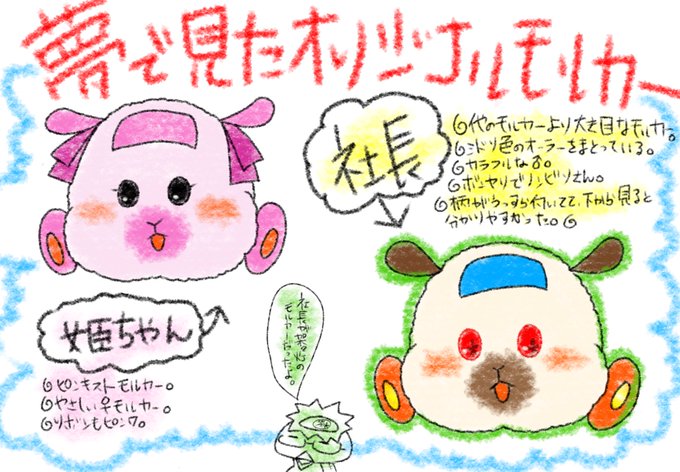 夢で見たオリジナルモルカー
社長
他のモルカーより大き目なモルカー。
ミドリ色のオーラーをまとっている。
カラフルな♂。
ボンヤリでノンビリさん。
柄がうっすら付いてて、下から見ると
分かりやすかった。
姫ちゃん
ピンキストモルカー。
やさしい♀モルカー。
リボンもピンク。
社長が
モルカーだったよ。